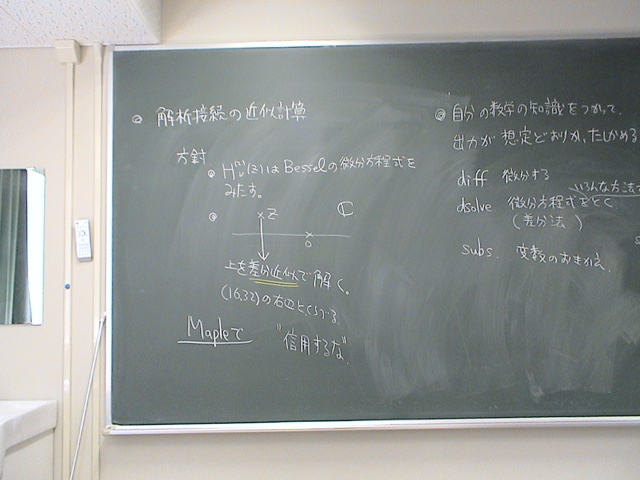 ◎ 解析接続の近似計算
方針
◎ H_ν^(2)(z)は Besselの微分方程式を
みたす。
◎ ×z ℂ
×
0
上を差分近似で解く。
(16.32)の右辺とくらべる
Mapleで "信用するな"
◎ 自分の数学の知識をつかって、
出力が想定どおりか、たしかめる
diff 微分する
いろんな方法で
dsolve 微分方程式をとく
(差分法)
subs. 変数のおきかえ